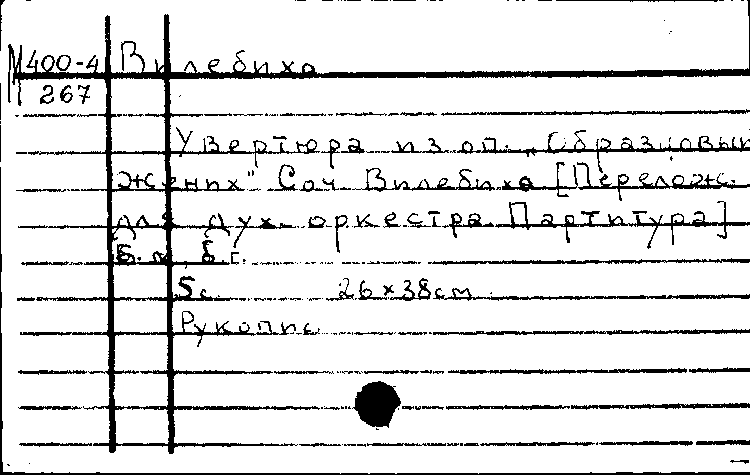 М 400-4 Вилебихо
267
Увертюра из оп. „Образцовый
жених" Соч. Вилебихо [Перелож.
для дух. оркестра. Партитура]
б. м., б. г.
5 с. 26×38 см.
Рукопис